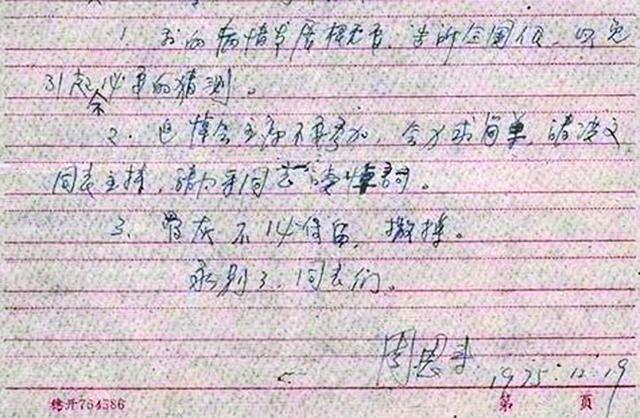 1. 我的病情发展 告诉全国人, 以免
引起不必要的猜测。
2. 追悼会主席不要参加, 会力求简单, 请洪文
同志主持, 请小平同志读悼词。
3. 骨灰不必保留, 撒掉。
永别了, 同志们。
周恩来
1975.12.19
764586 第 页